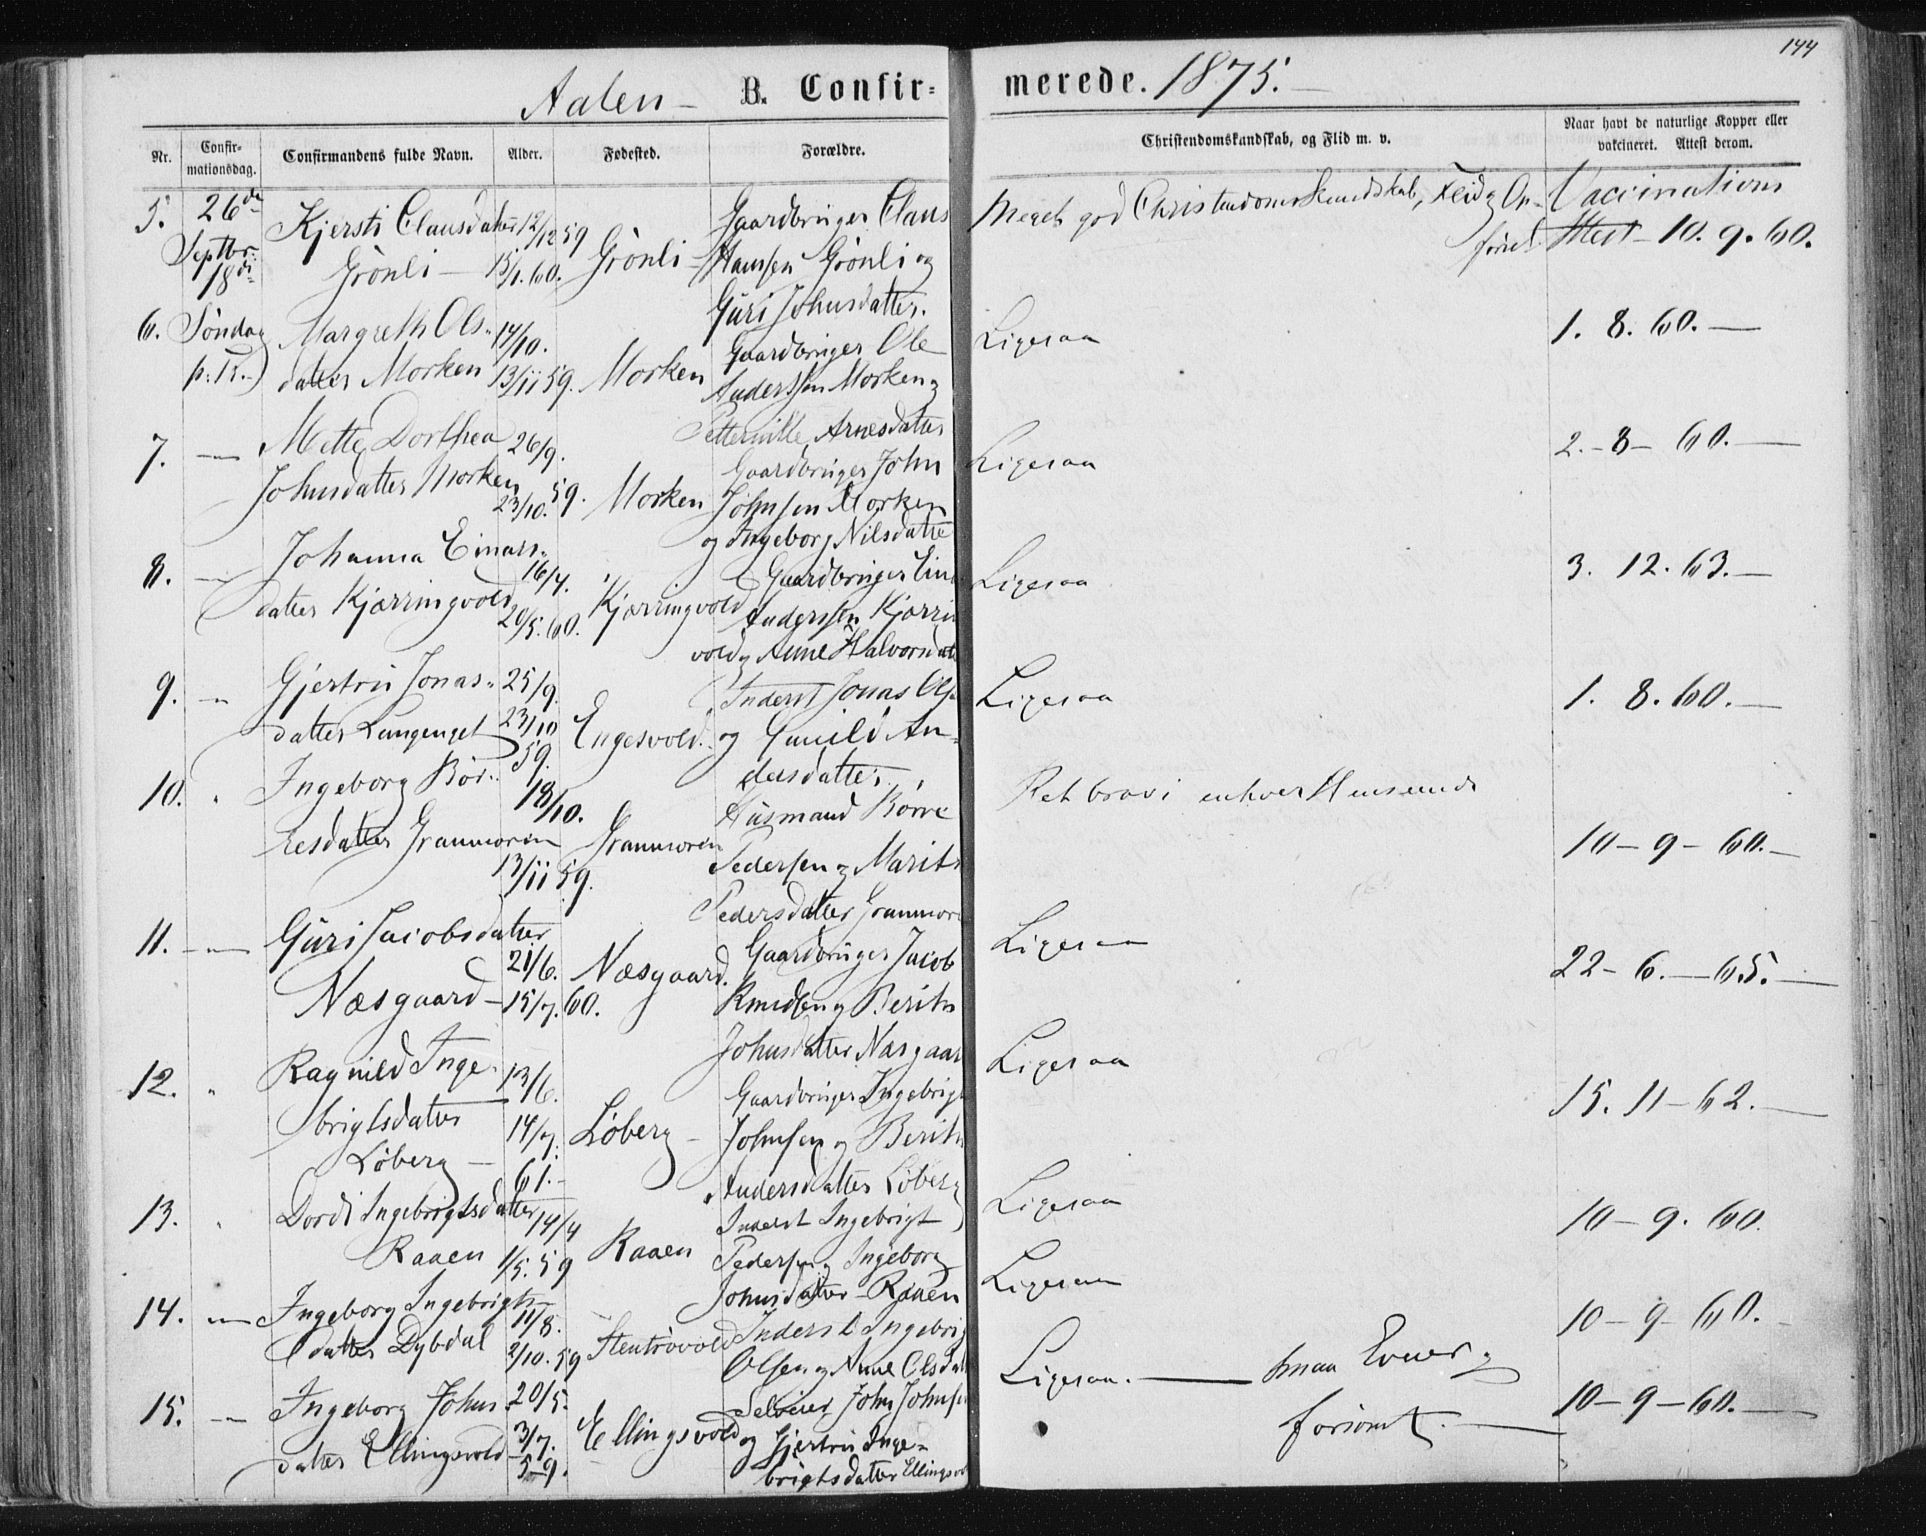 144
Aalen - B. Confir-merede. 1875. -
Nr. Confir-mationsdag. Confirmandens fulde Navn. Alder. Fødested. Forældre. Christendomskundskab, og Flid m. v. Naar havt de naturlige Kopper eller vakcineret. Attest derom.
5. 26de Kjersti Clausdatter 12/12 59 Gaardbruger Claus Meget god Christendomskundskab, Flid og Op- Vaccinations
Septbr. Grönli - 15/1. 60. Grönli - Hansen Grönli og försel. Attest - 10. 9. 60.
18de Guri Johnsdatter.
6. Söndag Margreth Ols- 14/10. Gaardbruger Ole Ligesaa 1. 8. 60. -
p: Tr.) datter Morken 13/11 59. Morken Anderssen Morken og
Petternille Arnesdatter
7. - Mette Dorthea 26/9. Gaardbruger John Ligesaa 2. - 8 - 60. -
Johnsdatter Morken 23/10. 59. Morken Johnsen Morken
og Ingeborg Nilsdatte
8. - Johanna Einars- 16/4. Gaardbruger Ein Ligesaa 3. 12. 63. -
datter Kjærringvold 20/5. 60. Kjærringvold Anderssen Kjærrin
vold og Anne Halvorsdatt
9. - Gjertru Jonas- 25/9. Inderst Jonas Ols Ligesaa 1. 8. 60. -
datter Lungenget 23/10 59. Engesvold. og Gunild An-
dersdatter
10. " Ingeborg Bör- 18/10. Husmand Börre Ret brav i enhver Henseende
resdatter Granmoren 13/11 59. Granmoren Pedersen og Marit 10 - 9 - 60. -
Pedersdatter Granmore
11. - Guri Jacobsdatter 21/6. Gaardbruger Jacob Ligesaa
Næsgaard - 15/7. 60. Næsgaard. Knudsen og Berith 22 - 6. - 65. -
Johnsdatter Næsgaar
12. " Ragnild Inge- 13/6. Gaardbruger Ingebrigt Ligesaa
brigtsdatter 14/7. Löberg - Johnsen og Berith 15. 11 - 62. -
Löberg - 61. - Andersdatter Löberg
13. " Dordi Ingebrigtsdatter 14/4 Inderst Ingebrigt Ligesaa 10 - 9. 60.
Raaen 1/5. 59 Raaen Pedersen og Ingeborg
Johnsdatter Raaen
14. - Ingeborg Ingebrigts- 11/8. Inderst Ingebrig Ligesaa 10 - 9 - 60.
datter Dybdal 2/10. 59 Stentrövold Olsen og Anne Olsdatt
15. - Ingeborg Johns- 20/5. Selveier John Johnsen Ligesaa. - smaa Evner og 10 - 9 - 60. -
datter Ellingsvold 3/7. 59. Ellingsvold og Gjertru Inge- forsömt. -
brigtsdatter Ellingsvol